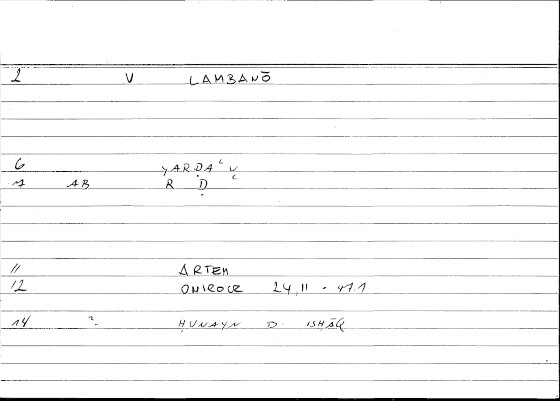 2 V LAMBANŌ
6 YARḌAʿU
1 AB R Ḍ ʿ
11 ARTEM
12 ONIROCR 24,11 - 47.1
14 2- ḤUNAYN B. ISḤĀQ